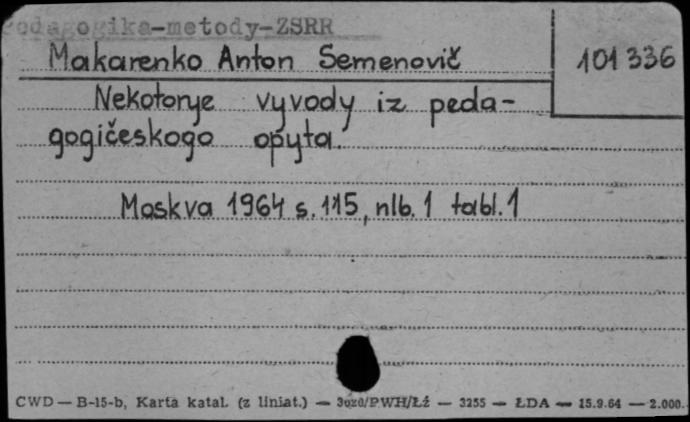 Pedagogika-metody-ZSRR
Makarenko Anton Semenovič
101 336
Nekotorye vyvody iz peda-
gogičeskogo opyta.
Moskva 1964 s. 115, nlb. 1 tabl. 1
CWD — B-15-b, Karta katal. (z liniat.) — Jozd/PWH/Łź — 3255 — ŁDA — 15.9.64 — 2.000.